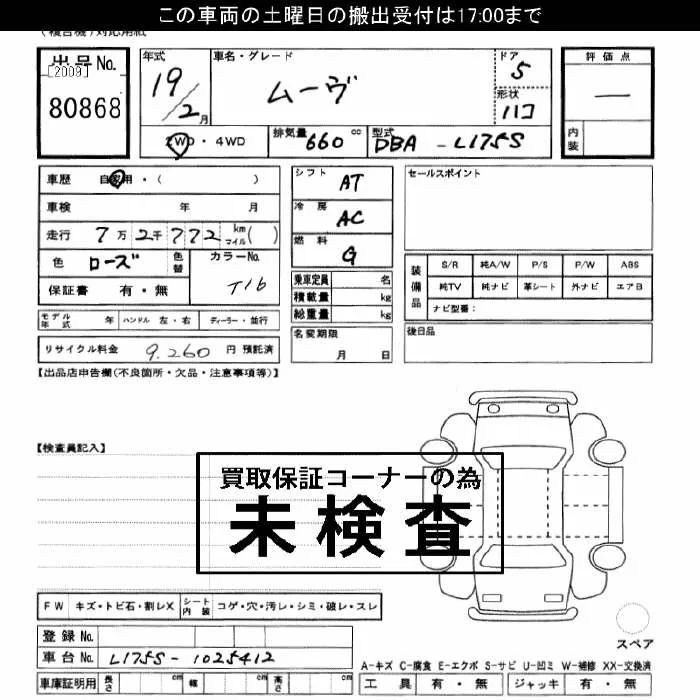 この車両の土曜日の搬出受付は17:00まで
(複合機)対応用紙
出品No.
[2009]
80868
年式
19/2月
車名・グレード
ムーヴ
ドア
5
形状
ハコ
2WD・4WD
排気量 660 cc
型式 DBA-L175S
評価点
—
内装
車歴 自家用・( )
車検 年 月
走行 7万2千772 km マイル( )
色 ローズ
色替
カラーNo.
T16
保証書 有・無
シフト AT
冷房 AC
燃料 G
乗車定員 名
積載量 kg
総重量 kg
名変期限
月 日
セールスポイント
装備品
S/R 純A/W P/S P/W ABS
純TV 純ナビ 革シート 外ナビ エアB
ナビ型番:
後日品
モデル年式 年 ハンドル 左・右 ディーラー・並行
リサイクル料金 9,260 円 預託済
【出品店申告欄(不良箇所・欠品・注意事項等)】
【検査員記入】
買取保証コーナーの為
未検査
FW キズ・トビ石・割レX シート内装 コゲ・穴・汚レ・シミ・破レ・スレ
登録No.
車台No. L175S-1025412
車庫証明用 長さ cm 幅 cm 高さ cm
スペア
A-キズ C-腐食 E-エクボ S-サビ U-凹ミ W-補修 XX-交換済
工具 有・無 ジャッキ 有・無